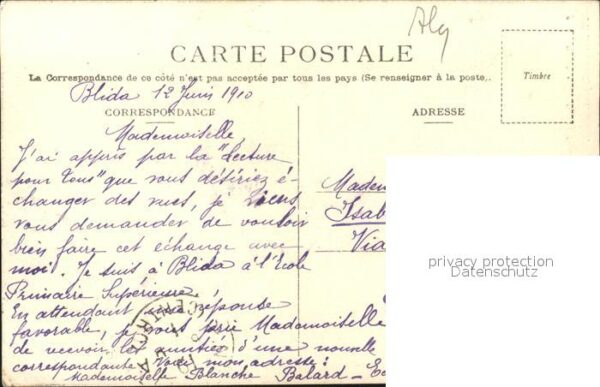 Alg
CARTE POSTALE
La Correspondance de ce côté n'est pas acceptée par tous les pays (Se renseigner à la poste).
Timbre
Blida 12 Juin 1910
CORRESPONDANCE
ADRESSE
Mademoiselle,
J'ai appris par la "Lecture
pour Tous" que vous désiriez é-
changer des vues, je viens
vous demander de vouloir
bien faire cet échange avec
moi. Je suis à Blida à l'Ecole
Primaire Supérieure.
En attendant une réponse
favorable, je vous prie Mademoiselle
de recevoir les amitiés d'une nouvelle
correspondante. Voici mon adresse:
Mademoiselle Blanche Balard - Ec
Madem
Isab
Via
privacy protection
Datenschutz